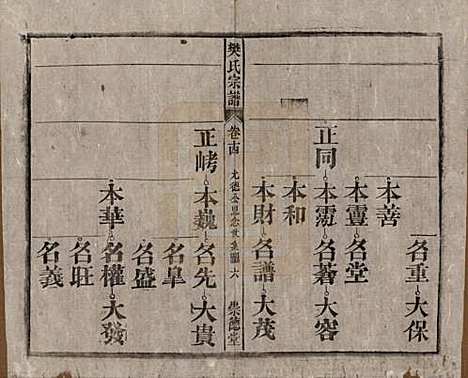 名重 大保
本善
本靈 名堂
正同 本 名蒼 大容
本和
本財 名譜 大茂
樊氏宗譜 卷十四 允德公思念世系圖 六 崇德堂
正 本巍 名先 大貴
名阜
名盛
本華 名權 大發
名旺
名義